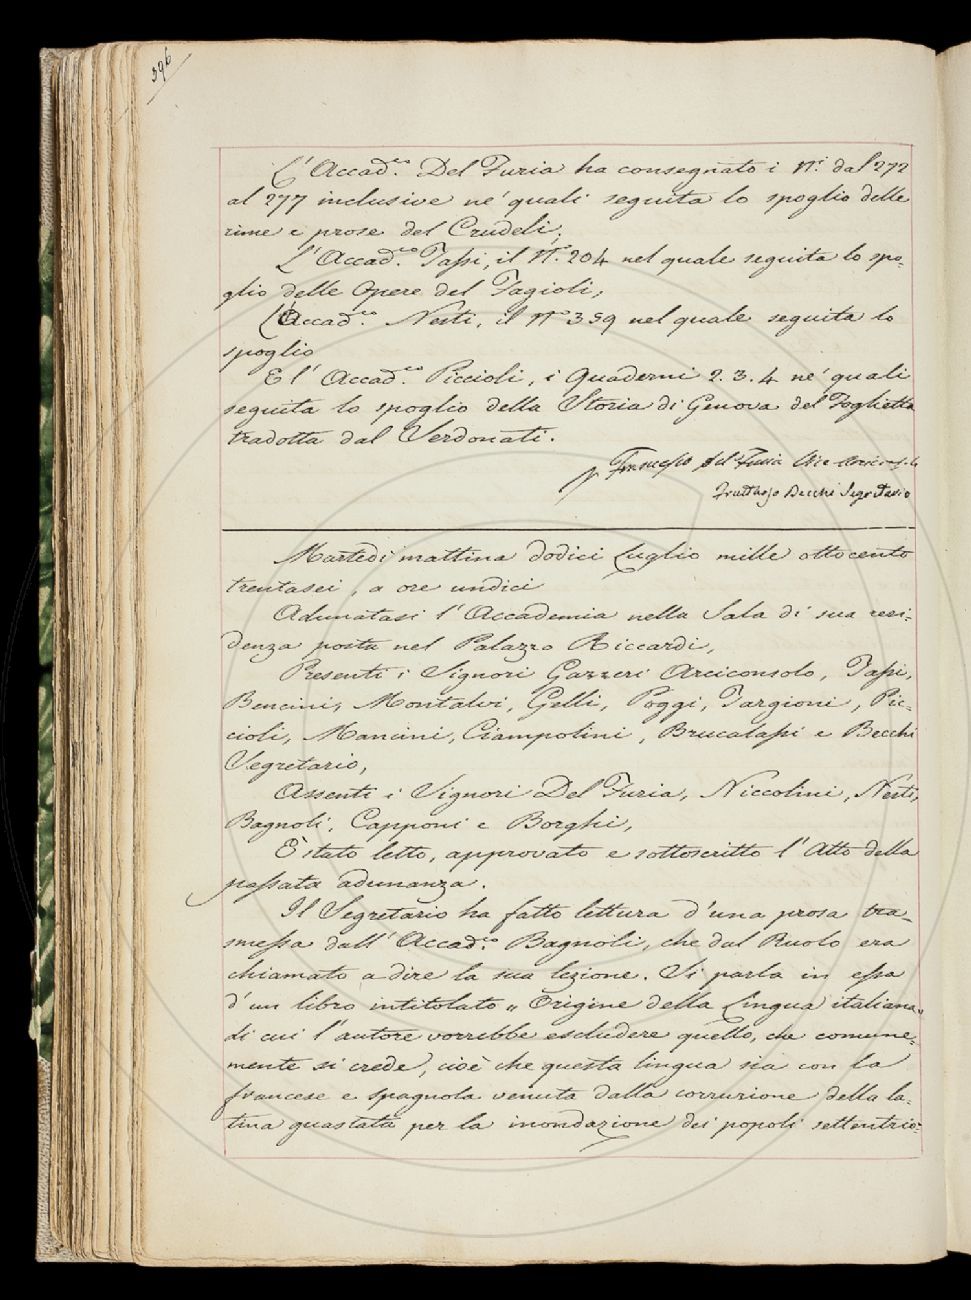 396
L'Accad.co Del Furia ha consegnato i N.i dal 272
al 277 inclusive ne' quali seguita lo spoglio delle
rime e prose del Crudeli;
L'Accad.co Tassi, il N.o 204 nel quale seguita lo spo-
glio delle Opere del Fagioli;
L'Accad.co Nesti, il N.o 359 nel quale seguita lo
spoglio
E l'Accad.co Piccioli, i Quaderni 2. 3. 4 ne' quali
seguita lo spoglio della Storia di Genova del Foglietta
tradotta dal Serdonati.
Francesco del Furia Vice
Fruttuoso Becchi Segretario
Martedì mattina dodici Luglio mille ottocento
trentasei, a ore undici
Adunatasi l'Accademia nella Sala di sua resi-
denza posta nel Palazzo Riccardi,
Presenti i Signori Gazzeri Arciconsolo, Tassi,
Bencini, Montalvi, Gelli, Poggi, Targioni, Pic-
cioli, Mancini, Ciampolini, Brucalassi e Becchi
Segretario,
Assenti i Signori Del Furia, Niccolini, Nesti,
Bagnoli, Capponi e Borghi,
È stato letto, approvato e sottoscritto l'Atto della
passata adunanza.
Il Segretario ha fatto lettura d'una prosa tra-
smessa dall'Accad.co Bagnoli, che dal Ruolo era
chiamato a dire la sua lezione. Si parla in essa
d'un libro intitolato „ Origine della Lingua italiana „
di cui l'autore vorrebbe escludere quello, che comune-
mente si crede, cioè che questa lingua sia con la
francese e spagnola venuta dalla corruzione della la-
tina guastata per la inondazione dei popoli settentrio-